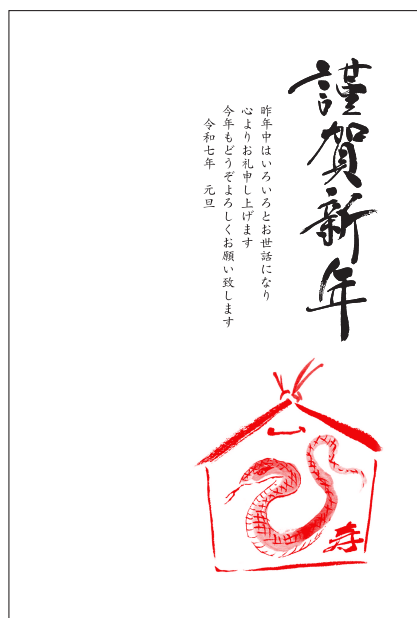 謹賀新年
昨年中はいろいろとお世話になり
心よりお礼申し上げます
今年もどうぞよろしくお願い致します
令和七年　元旦
寿